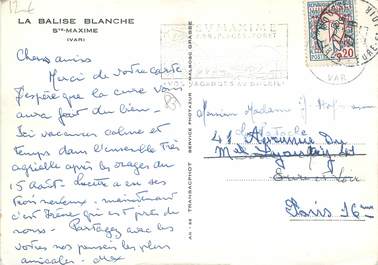 LA BALISE BLANCHE
STE-MAXIME
(VAR)
Chers amis
Merci de votre carte
j'espère que la cure vous
aura fait du bien -
Ici vacances calme et
temps dans l'ensemble très
agréable après les orages du
15 Août. Lucette a eu ses
trois neveux - maintenant
c'est Irène qui est près de
nous - Partagez avec les
vôtres nos pensées les plus
amicales -
STE MAXIME
VAR
0.20
Monsieur Madame
41 Avenue du
Mal Lyautey
Eure et Loir
Paris 16
TRANSACPHOT
SERVICE PHOTAZUR - MALBOSC GRASSE